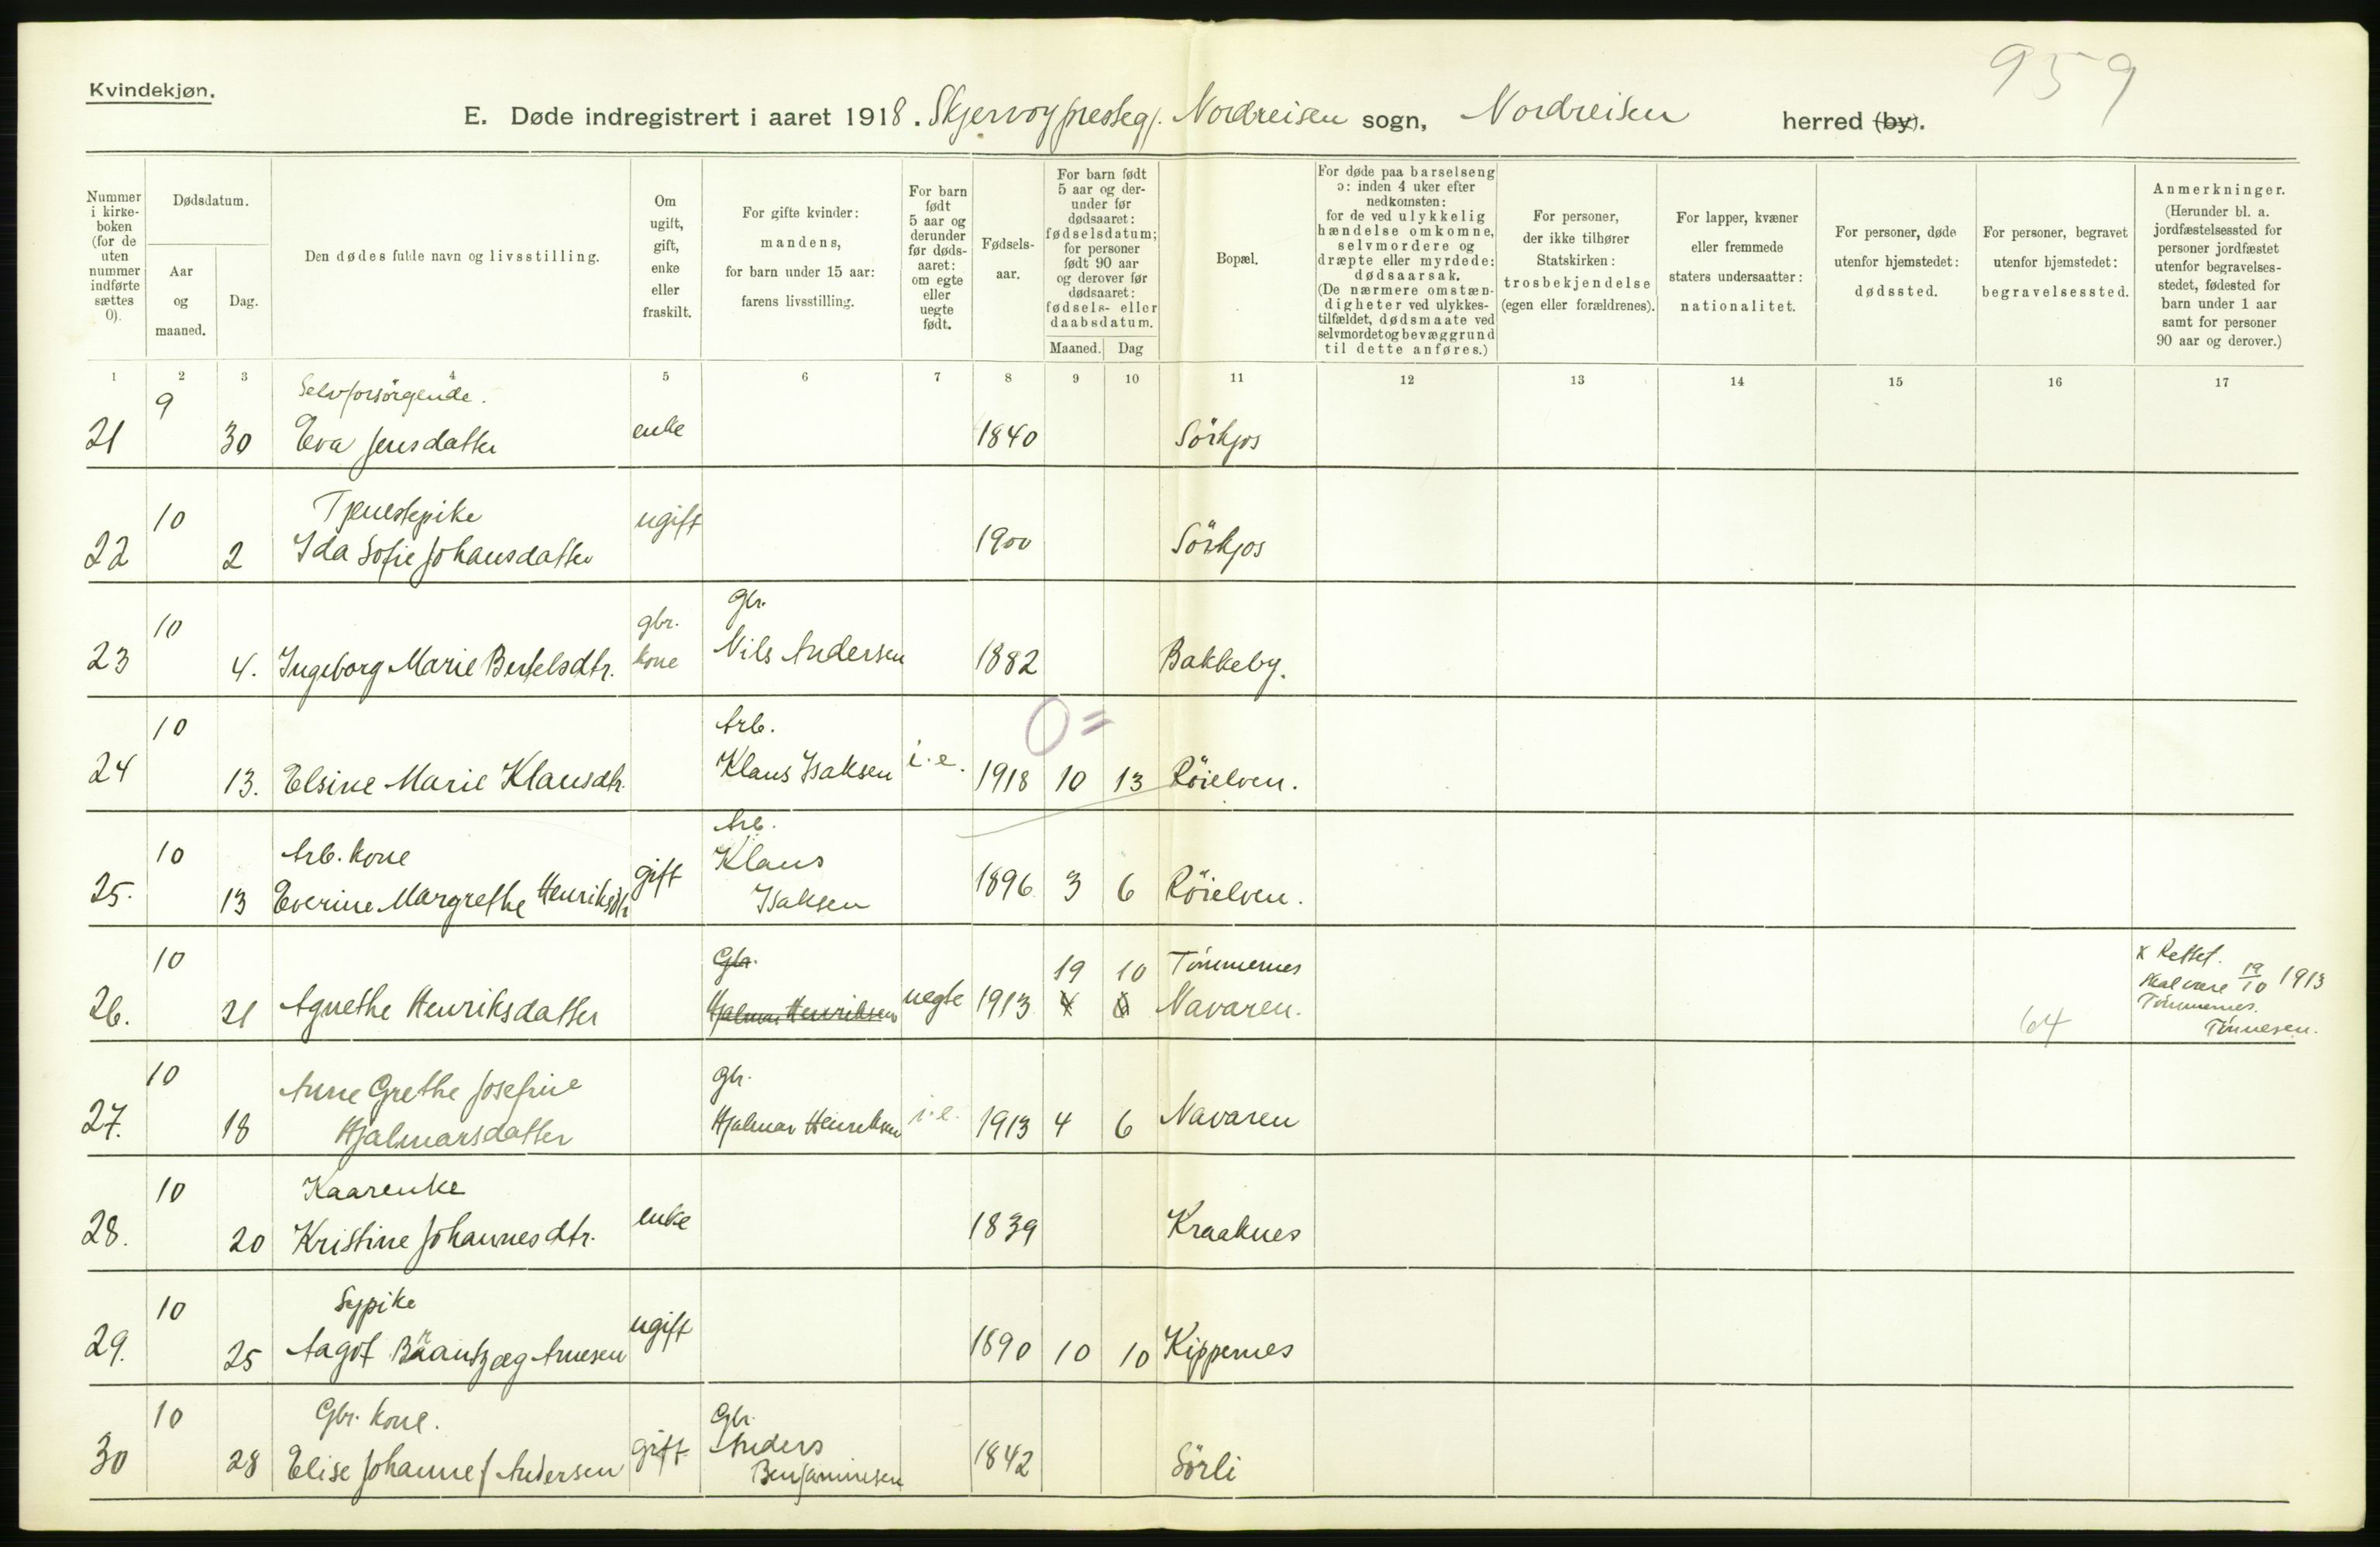 959
Kvindekjøn.
E. Døde indregistrert i aaret 1918. Skjervøy prestegj. Nordreisen sogn, Nordreisen herred (by).
Nummer i kirke- boken (for de uten nummer indførte sættes 0).
Dødsdatum.
Aar og maaned.
Dag.
Den dødes fulde navn og livsstilling.
Om ugift, gift, enke eller fraskilt.
For gifte kvinder: mandens, for barn under 15 aar: farens livsstilling.
For barn født 5 aar og derunder før døds- aaret: om egte eller uegte født.
Fødsels- aar.
For barn født 5 aar og der- under før dødsaaret: fødselsdatum; for personer født 90 aar og derover før dødsaaret: fødsels- eller daabsdatum.
Maaned. Dag
Bopæl.
For døde paa barselseng ɔ: inden 4 uker efter nedkomsten: for de ved ulykkelig hændelse omkomne, selvmordere og dræpte eller myrdede: dødsaarsak. (De nærmere omstæn- digheter ved ulykkes- tilfældet, dødsmaate ved selvmordet og bevæggrund til dette anføres.)
For personer, der ikke tilhører Statskirken: trosbekjendelse (egen eller forældrenes).
For lapper, kvæner eller fremmede staters undersaatter: nationalitet.
For personer, døde utenfor hjemstedet: dødssted.
For personer, begravet utenfor hjemstedet: begravelsessted.
Anmerkninger. (Herunder bl. a. jordfæstelsessted for personer jordfæstet utenfor begravelses- stedet, fødested for barn under 1 aar samt for personer 90 aar og derover.)
1 2 3 4 5 6 7 8 9 10 11 12 13 14 15 16 17
9 Selvforsörgende.
21 30 Eva Jensdatter enke 1840 Sörkjos
10 Tjenestepike ugift
22 2 Ida Sofie Johansdatter 1900 Sörkjos
10 gbr. Gbr.
23 4. Ingeborg Marie Bertelsdtr. kone Nils Andersen 1882 Bakkeby.
10 Arb. 0 =
24 13. Elsine Marie Klausdtr. Klaus Isaksen i.e. 1918 10 13 Röielven.
10 Arb. kone Arb. Klaus
25. 13 Everine Margrethe Henriksdtr gift Isaksen 1896 3 6 Röielven.
10 Gbr. 19 10 Tömmernes x Rettet.
26. 21 Agnethe Henriksdatter Hjalmar Henriksen uegte 1913 4 6 Navaren. 64 skal være 19/10 1913
Tömmernes.
Tönnesen.
10 Anne Grethe Josefine Gbr.
27. 18 Hjalmarsdatter Hjalmar Henriksen i.e. 1913 4 6 Navaren
10 Kaarenke
28. 20 Kristine Johannesdtr. enke 1839 Kraaknes
10 Sypike
29. 25 Aagot Arnesen ugift 1890 10 10 Kippernes
10 Gbr. kone. Gbr. Anders
30 28 Elise Johanne J Andersen gift Benjaminsen 1842 Sörli